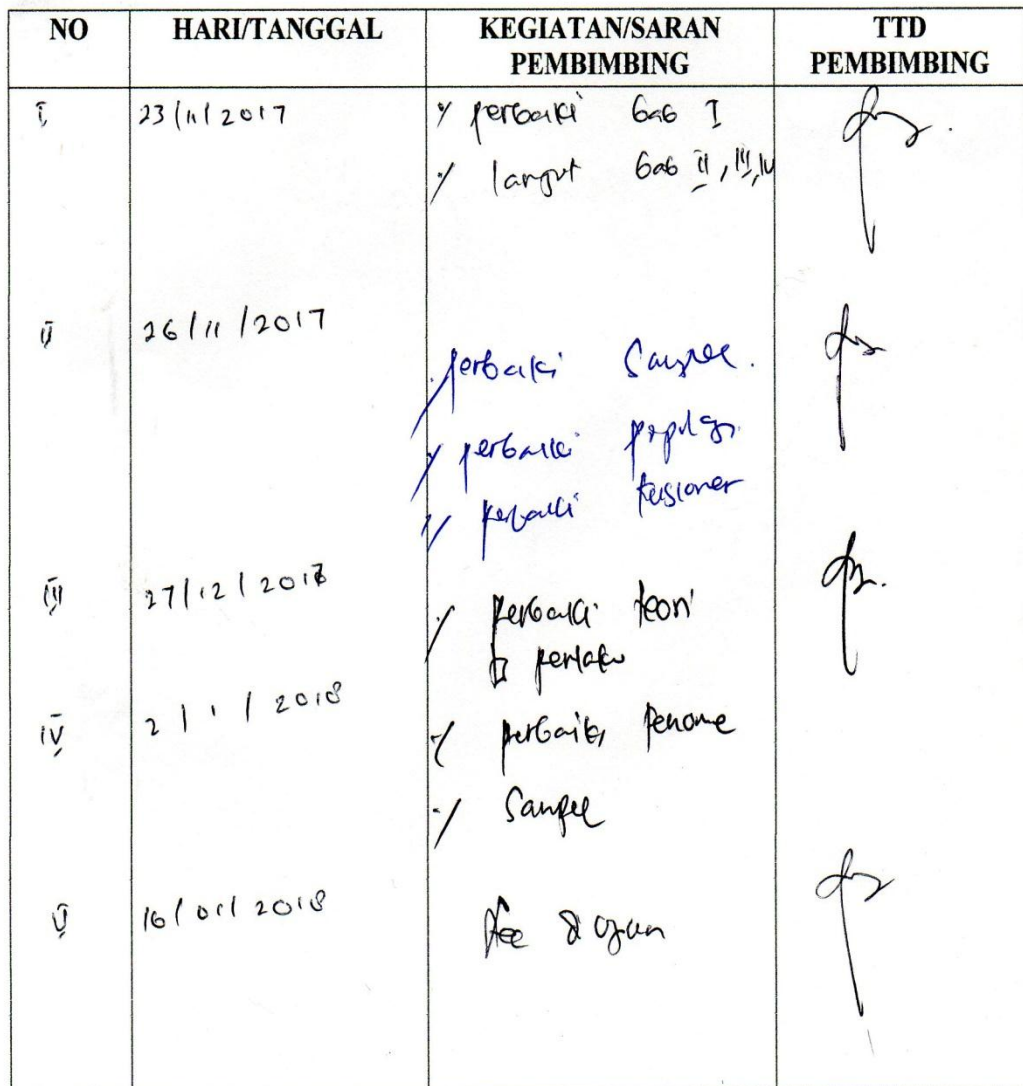 NO HARI/TANGGAL KEGIATAN/SARAN PEMBIMBING TTD PEMBIMBING
I 23/11/2017 perbaiki bab I
lanjut bab II, III, IV
II 26/11/2017
perbaiki Sampel.
perbaiki populasi
perbaiki kusioner
III 27/12/2017
perbaiki teori
perlaku
IV 2/1/2018 perbaiki
Sampel
V 16/01/2018 Acc